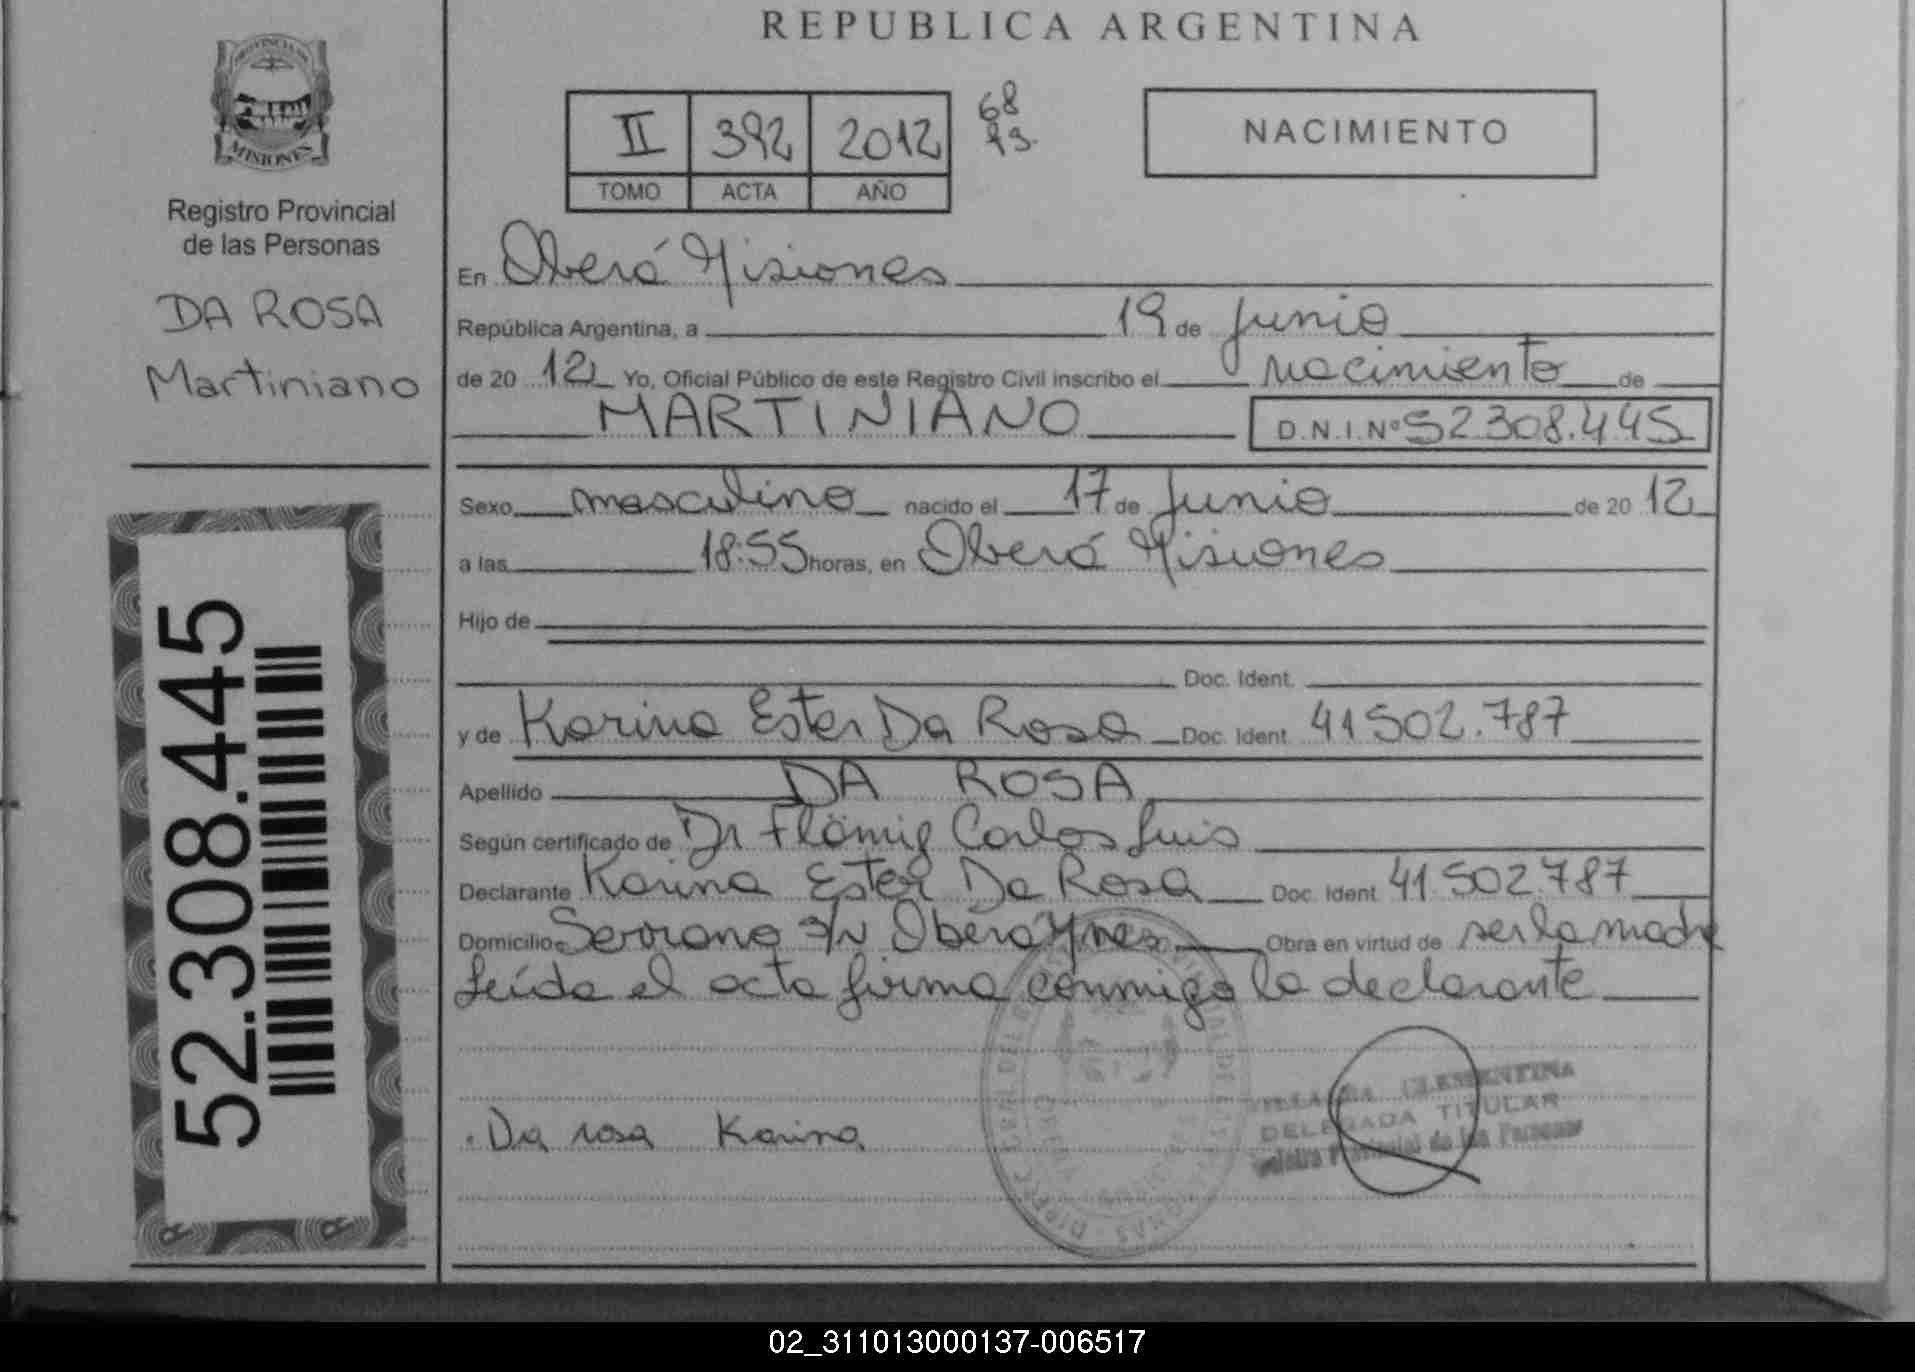 REPUBLICA ARGENTINA
PROVINCIA DE
MISIONES
Registro Provincial
de las Personas
DA ROSA
Martiniano
52.308.445
R R
II 392 2012
TOMO ACTA AÑO
68
NACIMIENTO
En Oberá Misiones
República Argentina, a 19 de Junio
de 20 12 Yo, Oficial Público de este Registro Civil inscribo el nacimiento de
MARTINIANO D.N.I.Nº 52.308.445
Sexo masculino nacido el 17 de Junio de 20 12
a las 18:55 horas, en Oberá Misiones
Hijo de
Doc. Ident.
y de Karina Ester Da Rosa Doc. Ident. 41502.787
Apellido DA ROSA
Según certificado de Dr Flömig Carlos Luis
Declarante Karina Ester Da Rosa Doc. Ident. 41.502.787
Domicilio Serrano s/N Oberá Mnes. Obra en virtud de ser la madre
Leída el acta firma conmigo la declarante
Da rosa Karina
CLEMENTINA
DELEGADA TITULAR
Provincial de las Personas
02_311013000137-006517